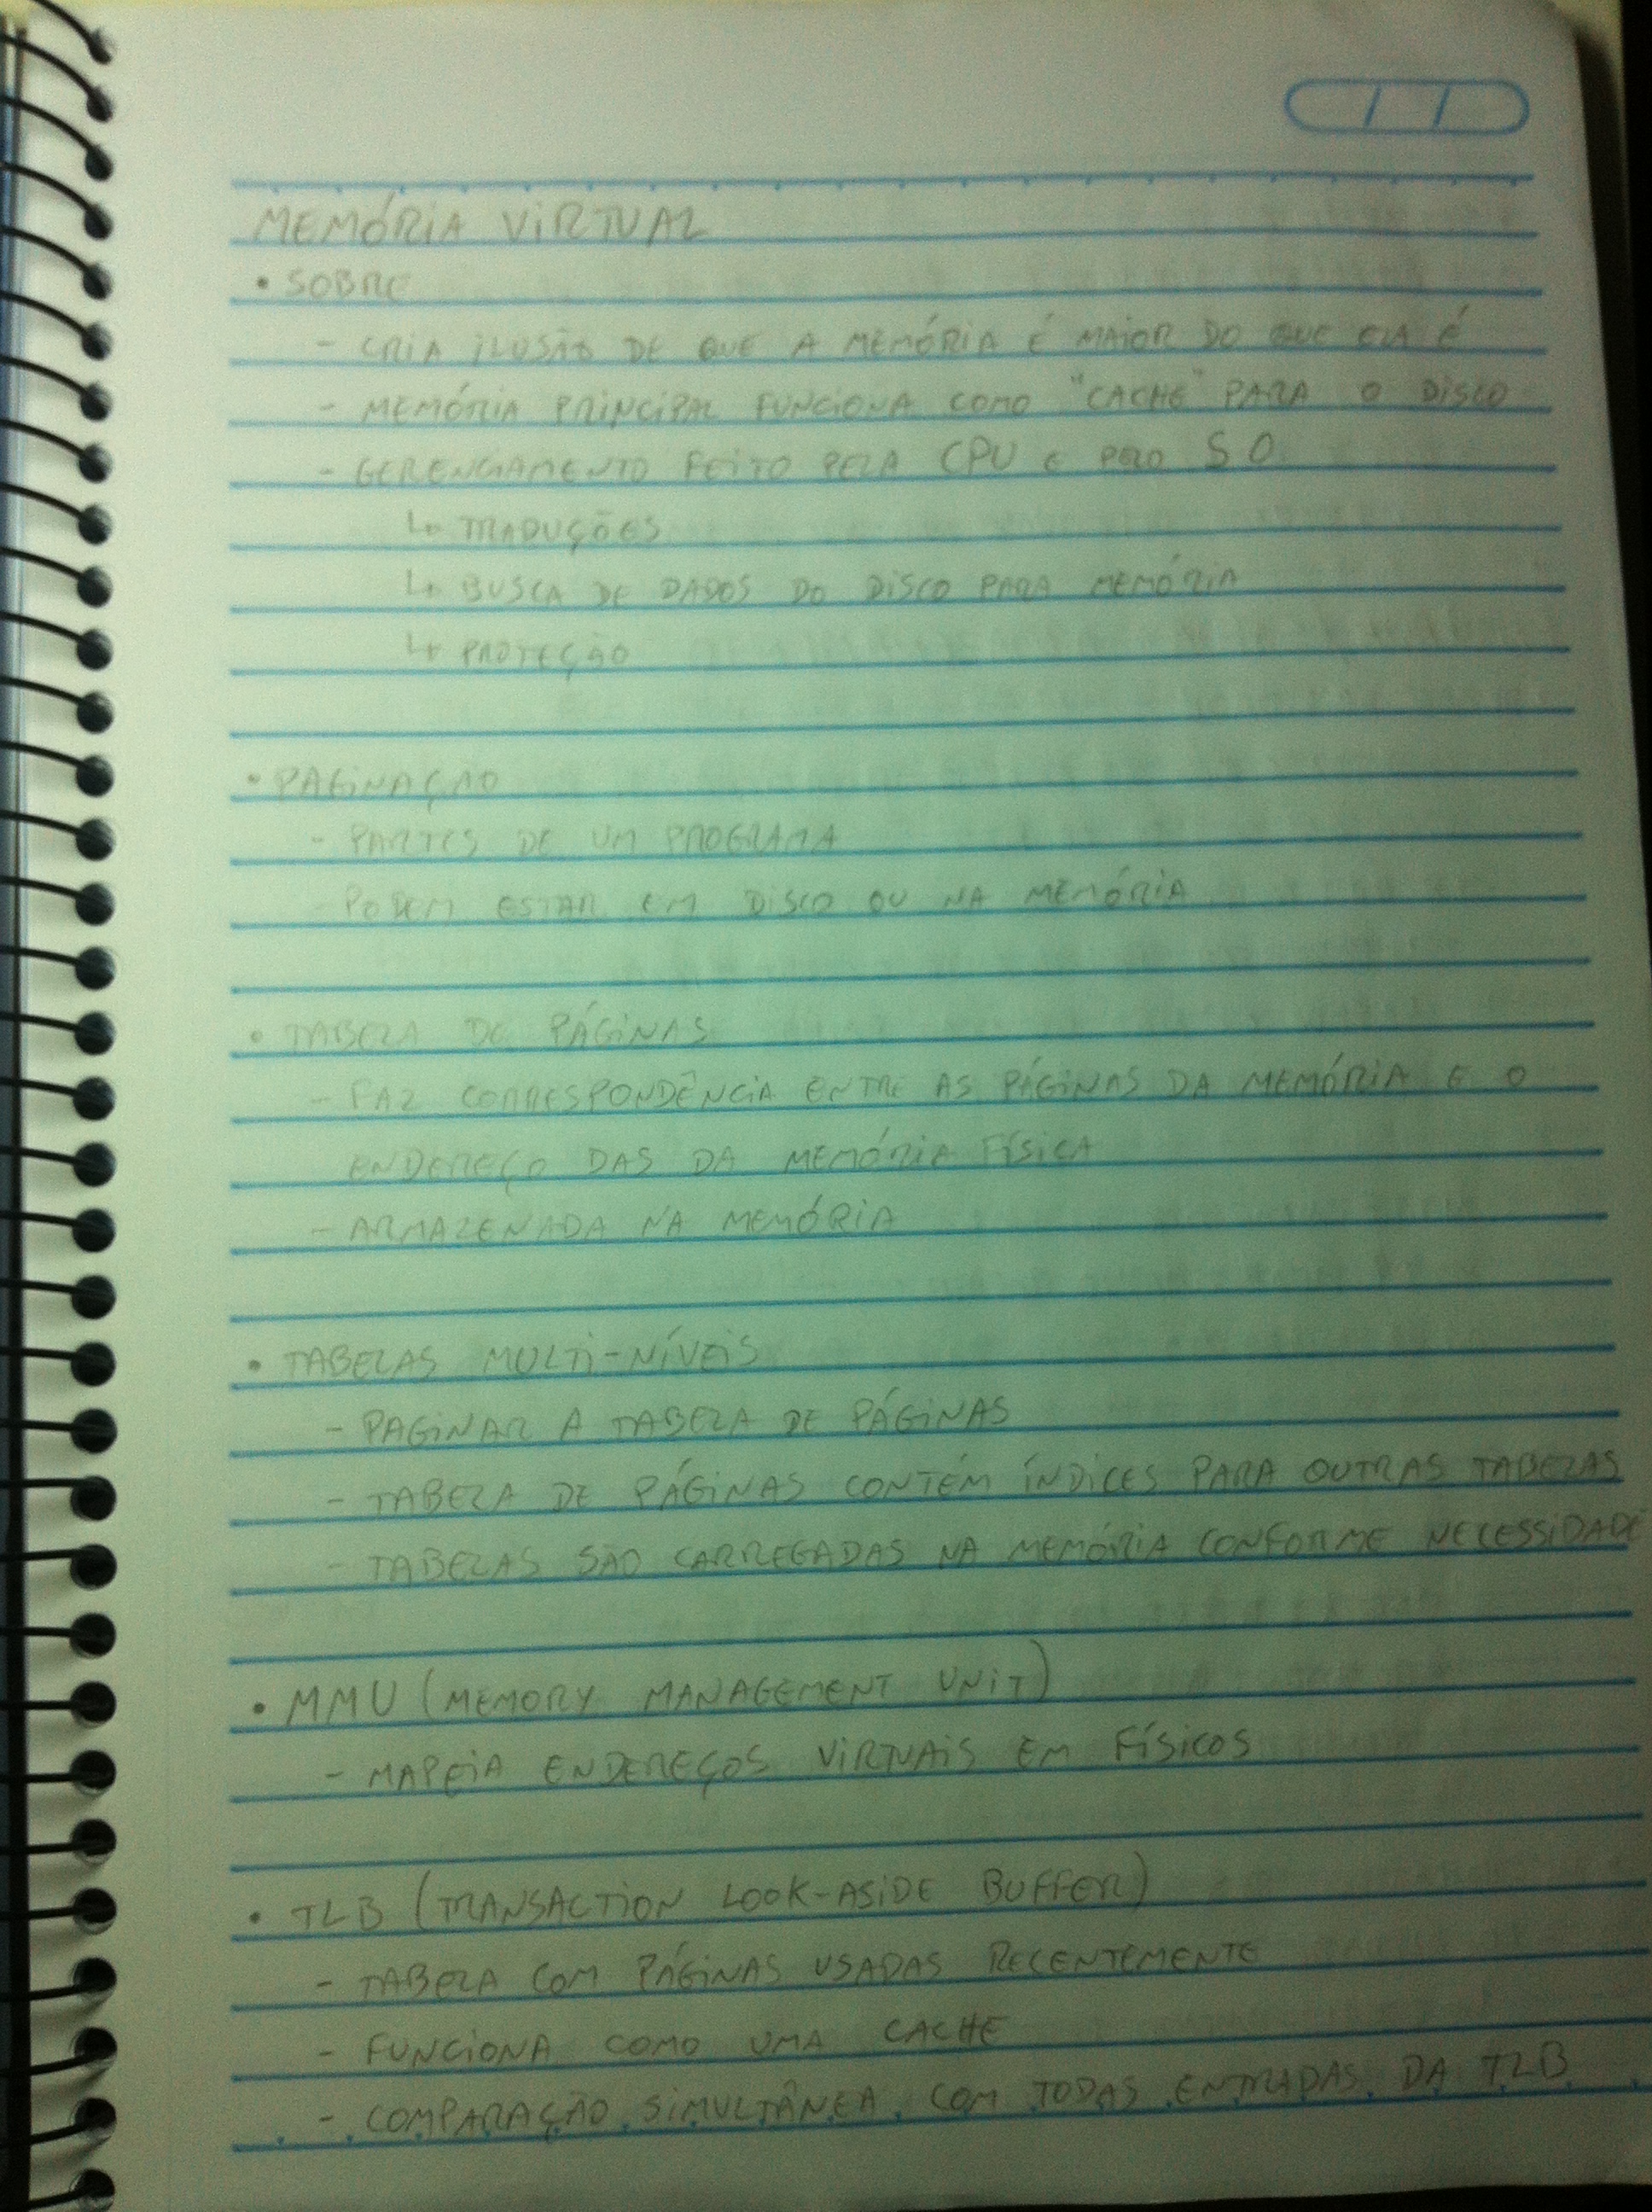 MEMÓRIA VIRTUAL
• SOBRE
- CRIA ILUSÃO DE QUE A MEMÓRIA É MAIOR DO QUE ELA É
- MEMÓRIA PRINCIPAL FUNCIONA COMO "CACHE" PARA O DISCO
- GERENCIAMENTO FEITO PELA CPU E PELO SO
↳ TRADUÇÕES
↳ BUSCA DE DADOS DO DISCO PARA MEMÓRIA
↳ PROTEÇÃO
• PAGINAÇÃO
- PARTES DE UM PROGRAMA
- PODEM ESTAR EM DISCO OU NA MEMÓRIA
• TABELA DE PÁGINAS
- FAZ CORRESPONDÊNCIA ENTRE AS PÁGINAS DA MEMÓRIA E O
ENDEREÇO DAS DA MEMÓRIA FÍSICA
- ARMAZENADA NA MEMÓRIA
• TABELAS MULTI-NÍVEIS
- PAGINAR A TABELA DE PÁGINAS
- TABELA DE PÁGINAS CONTÉM ÍNDICES PARA OUTRAS TABELAS
- TABELAS SÃO CARREGADAS NA MEMÓRIA CONFORME NECESSIDADE
• MMU (MEMORY MANAGEMENT UNIT)
- MAPEIA ENDEREÇOS VIRTUAIS EM FÍSICOS
• TLB (TRANSACTION LOOK-ASIDE BUFFER)
- TABELA COM PÁGINAS USADAS RECENTEMENTE
- FUNCIONA COMO UMA CACHE
- COMPARAÇÃO SIMULTÂNEA COM TODAS ENTRADAS DA TLB